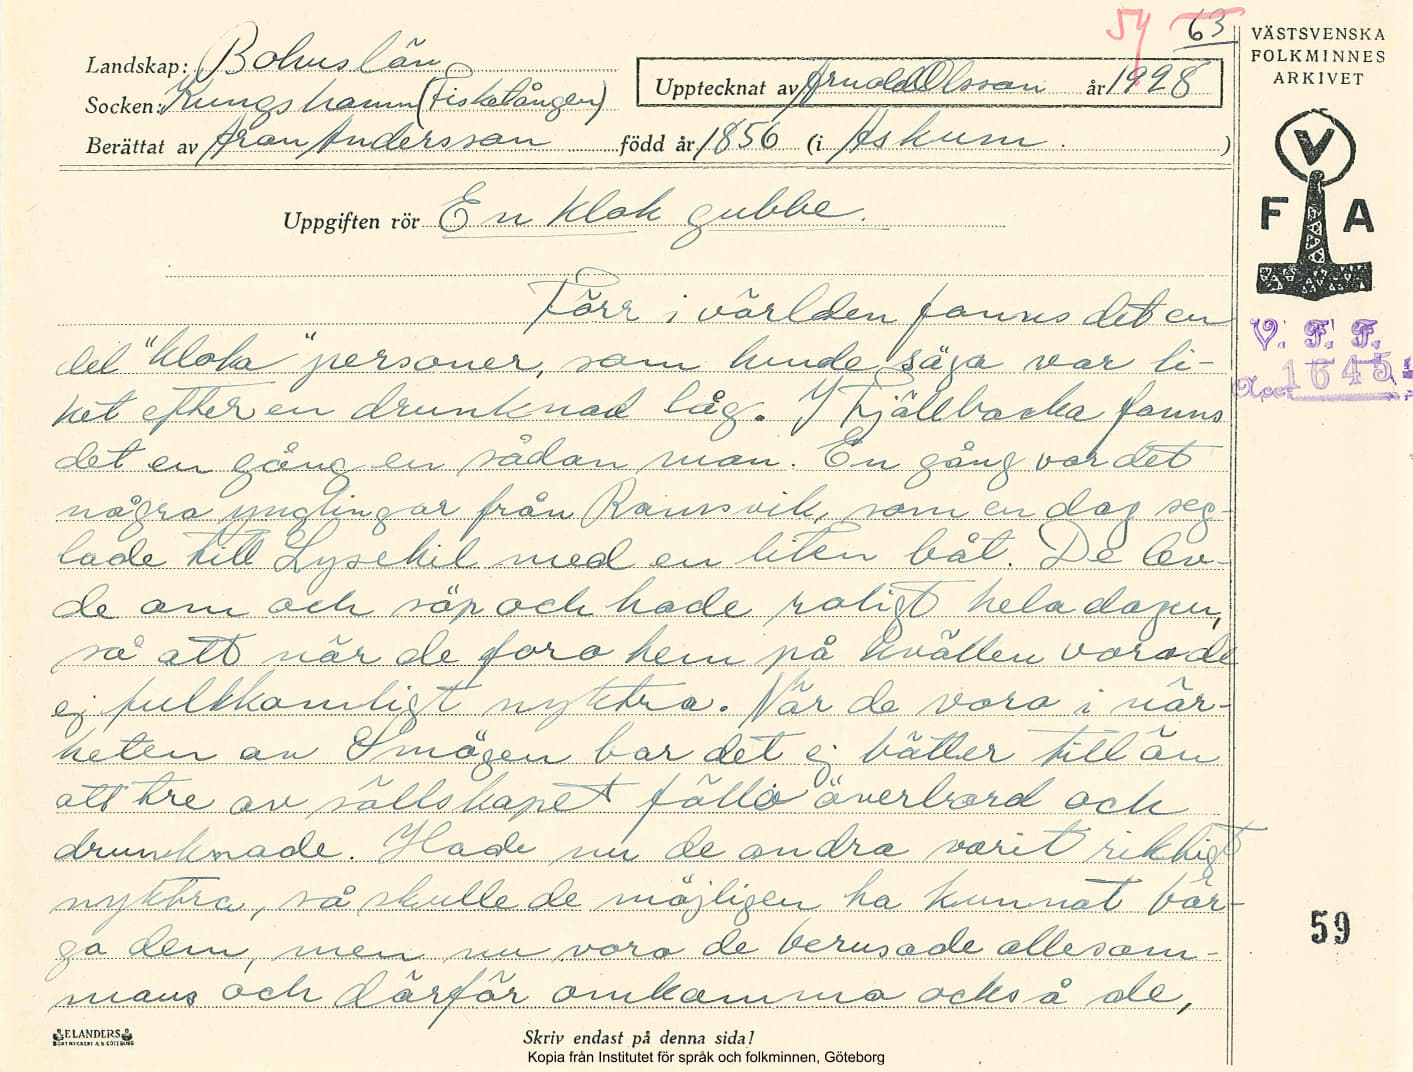 54 63
VÄSTSVENSKA
FOLKMINNES
ARKIVET
Landskap: Bohuslän
Upptecknat av Arnold Olsson år 1928
Socken: Kungshamn (Fisketången)
Berättat av Aron Andersson född år 1856 (i Askum.)
V
F A
Uppgiften rör En klok gubbe.
Förr i världen fanns det en
del "kloka" personer, som kunde säga var li-
ket efter en drunknad låg. I Fjällbacka fanns
det en gång en sådan man. En gång var det
några ynglingar från Ramsvik, som en dag seg-
lade till Lysekil med en liten båt. De lev-
de om och söp och hade roligt hela dagen,
så att när de foro hem på kvällen voro de
ej fullkomligt nyktra. När de voro i när-
heten av Smögen bar det ej bätter till än
att tre av sällskapet föllo överbord och
drunknade. Hade nu de andra varit riktigt
nyktra, så skulle de möjligen ha kunnat bär-
ga dem, men nu voro de berusade allesam-
mans och därför omkomma också de,
V. F. F.
Acc. 1645
59
ELANDERS
BOKTRYCKERI A.B. GÖTEBORG
Skriv endast på denna sida!
Kopia från Institutet för språk och folkminnen, Göteborg